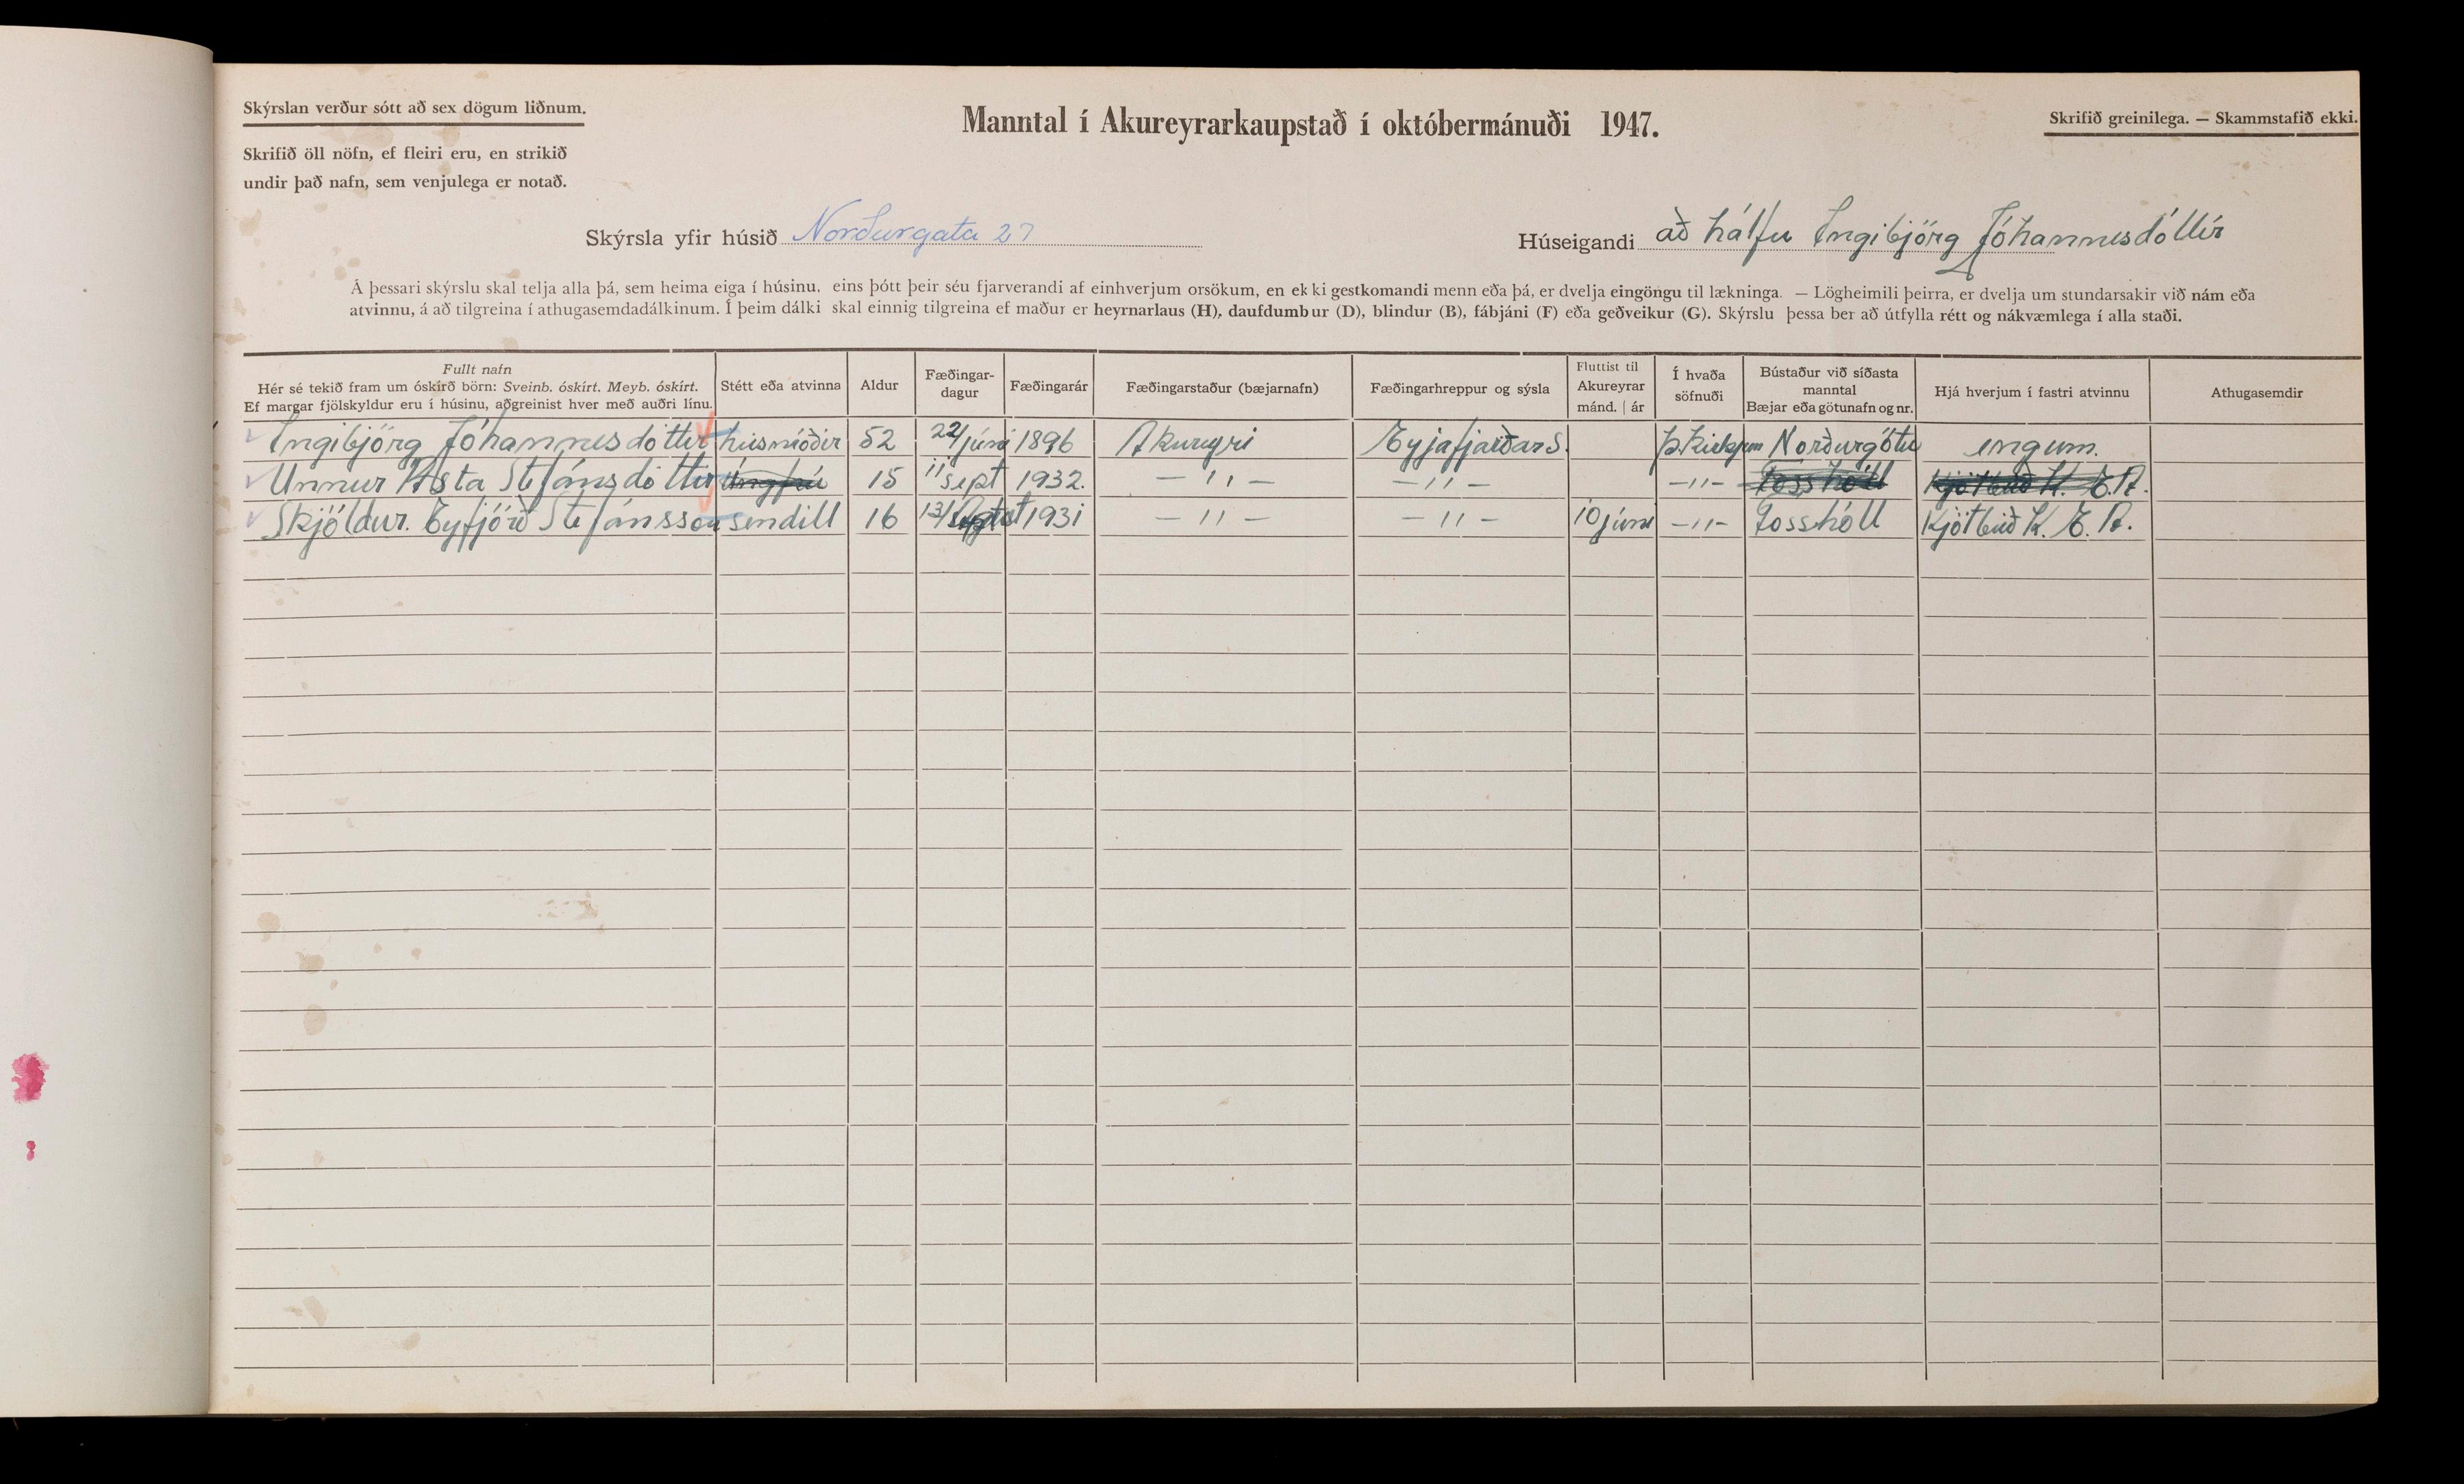 Skýrslan verður sótt að sex dögum liðnum.
Skrifið öll nöfn, ef fleiri eru, en strikið
undir það nafn, sem venjulega er notað.
Manntal í Akureyrarkaupstað í októbermánuði 1947.
Skrifið greinilega. — Skammstafið ekki.
Skýrsla yfir húsið Norðurgata 27
Húseigandi að hálfu Ingibjörg Jóhannesdóttir
Á þessari skýrslu skal telja alla þá, sem heima eiga í húsinu, eins þótt þeir séu fjarverandi af einhverjum orsökum, en ekki gestkomandi menn eða þá, er dvelja eingöngu til lækninga. — Lögheimili þeirra, er dvelja um stundarsakir við nám eða
atvinnu, á að tilgreina í athugasemdadálkinum. Í þeim dálki skal einnig tilgreina ef maður er heyrnarlaus (H), daufdumbur (D), blindur (B), fábjáni (F) eða geðveikur (G). Skýrslu þessa ber að útfylla rétt og nákvæmlega í alla staði.
Fullt nafn
Hér sé tekið fram um óskírð börn: Sveinb. óskírt. Meyb. óskírt.
Ef margar fjölskyldur eru í húsinu, aðgreinist hver með auðri línu.
Stétt eða atvinna
Aldur
Fæðingar-
dagur
Fæðingarár
Fæðingarstaður (bæjarnafn)
Fæðingarhreppur og sýsla
Fluttist til
Akureyrar
mánd. | ár
Í hvaða
söfnuði
Bústaður við síðasta
manntal
Bæjar eða götunafn og nr.
Hjá hverjum í fastri atvinnu
Athugasemdir
Ingibjörg Jóhannesdóttir húsmóðir 52 22/júní 1896 Akureyri Eyjafjarðar S. Þ.Kirkjun Norðurgötu engum.
Unnur Ásta Stefánsdóttir ungfrú 15 11 sept 1932. — 11 — — 11 — —11— Fosshóll Kjötbúð K. E. A.
Skjöldur. Eyfjörð Stefánsson sendill 16 13/ 1931 — 11 — — 11 — 10 júní —11— Fosshóll Kjötbúð K. E. A.